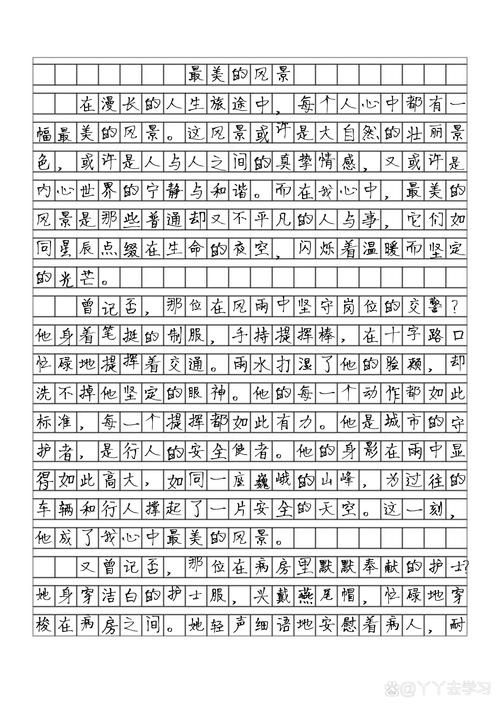 最美的风景
在漫长的人生旅途中，每个人心中都有一
幅最美的风景。这风景或许是大自然的壮丽景
色，或许是人与人之间的真挚情感，又或许是
内心世界的宁静与和谐。而在我心中，最美的
风景是那些普通却又不平凡的人与事，它们如
同星辰点缀在生命的夜空，闪烁着温暖而坚定
的光芒。
曾记否，那位在风雨中坚守岗位的交警？
他身着笔挺的制服，手持指挥棒，在十字路口
忙碌地指挥着交通。雨水打湿了他的脸颊，却
洗不掉他坚定的眼神。他的每一个动作都如此
标准，每一个指挥都如此有力。他是城市的守
护者，是行人的安全使者。他的身影在雨中显
得如此高大，如同一座巍峨的山峰，为过往的
车辆和行人撑起了一片安全的天空。这一刻，
他成了我心中最美的风景。
又曾记否，那位在病房里默默奉献的护士？
她身穿洁白的护士服，头戴燕尾帽，忙碌地穿
梭在病房之间。她轻声细语地安慰着病人，耐
@丫丫去学习